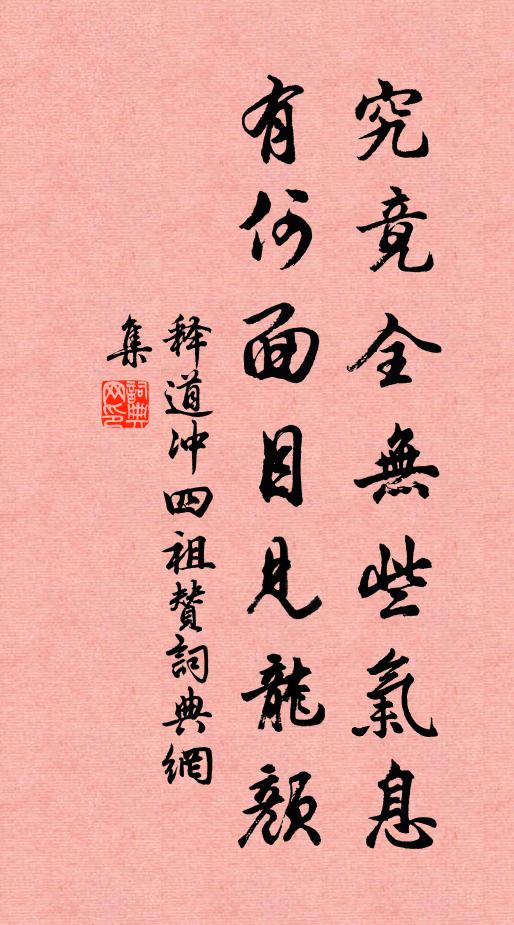 究竟全無些氣息
有何面目見龍顔
释道冲四祖贊詞典網
集
詞典
网印